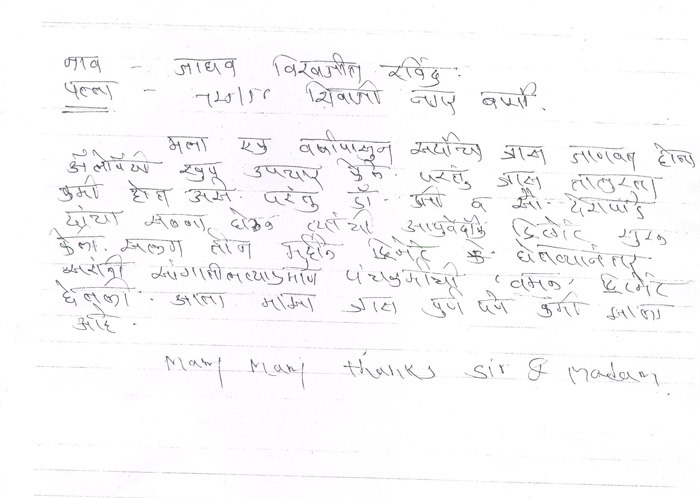 नाव - जाधव विश्वजीत रविंद्र.
पत्ता - शिवाजी नगर बार्शी.
मला एक वर्षापासुन सर्दीचा त्रास जाणवत होता
ॲलोपॅथी खुप उपचार केले. परंतु त्रास तात्पुरता
कमी होत असे. परंतु डॉ. श्री व सौ. देशपांडे
यांचा सल्ला घेऊन त्यांची आयुर्वेदीक ट्रिटमेंट सुरू
केला. सलग तीन महीने ट्रिटमेंट घेतल्यानंतर
सरांनी सांगातीलत्याप्रमाणे पंचकर्माची वमन ट्रिटमेंट
घेतली. आता माझा त्रास पुर्ण पणे कमी झाला
आहे.
Many Many thanks sir & madam.